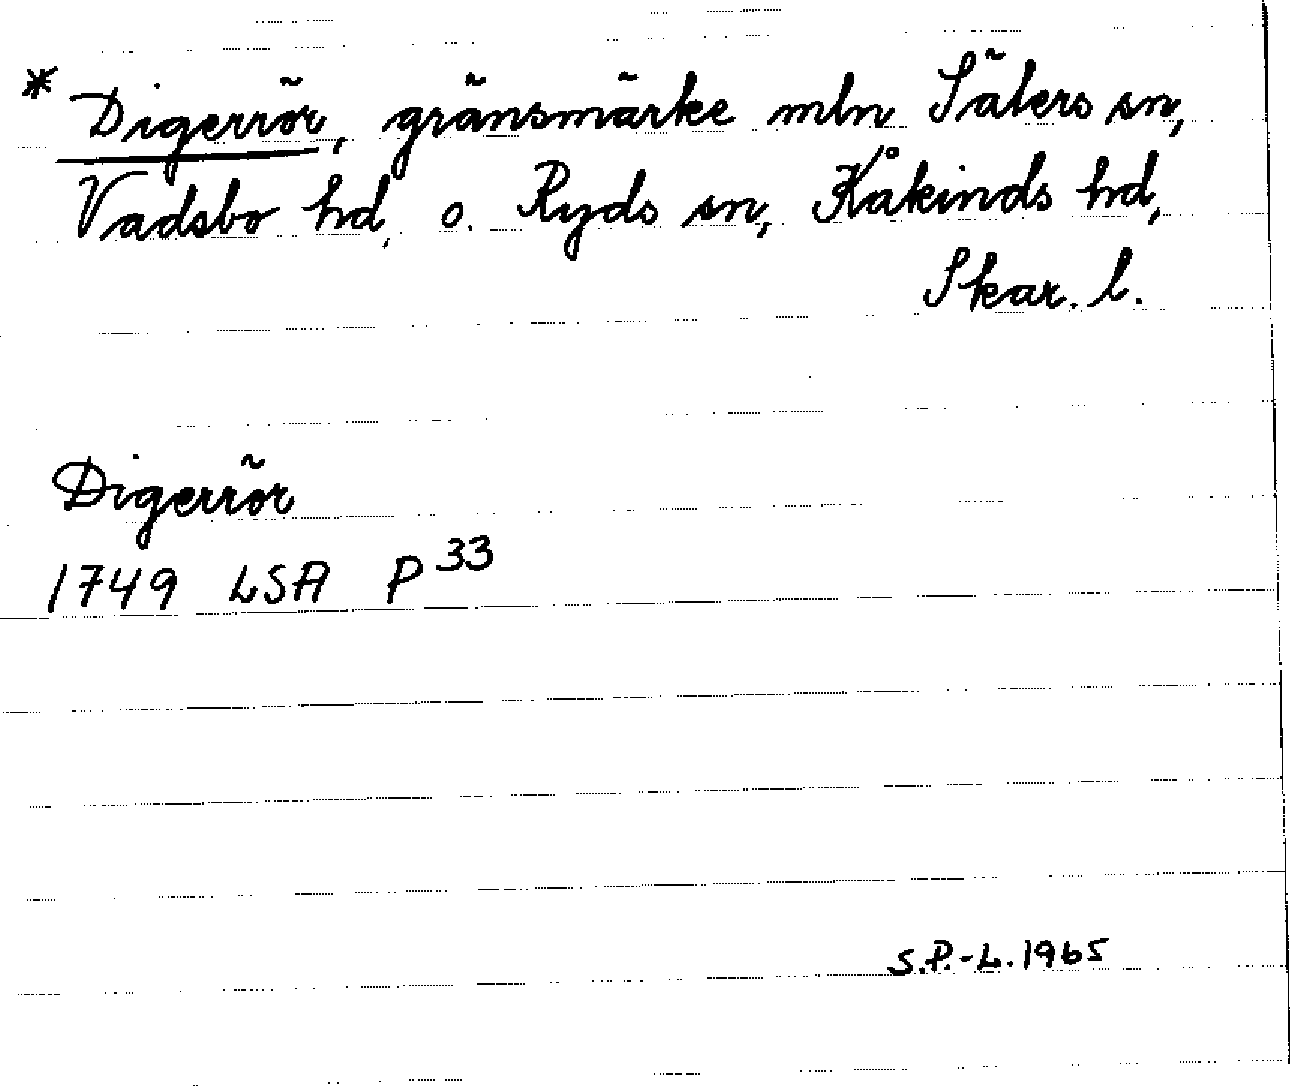 * Digerrör, gränsmärke mln Säters sn,
Vadsbo hd, o. Ryds sn, Kåkinds hd,
Skar. l.
Digerrör
1749 LSA P 33
S.P.-L. 1965